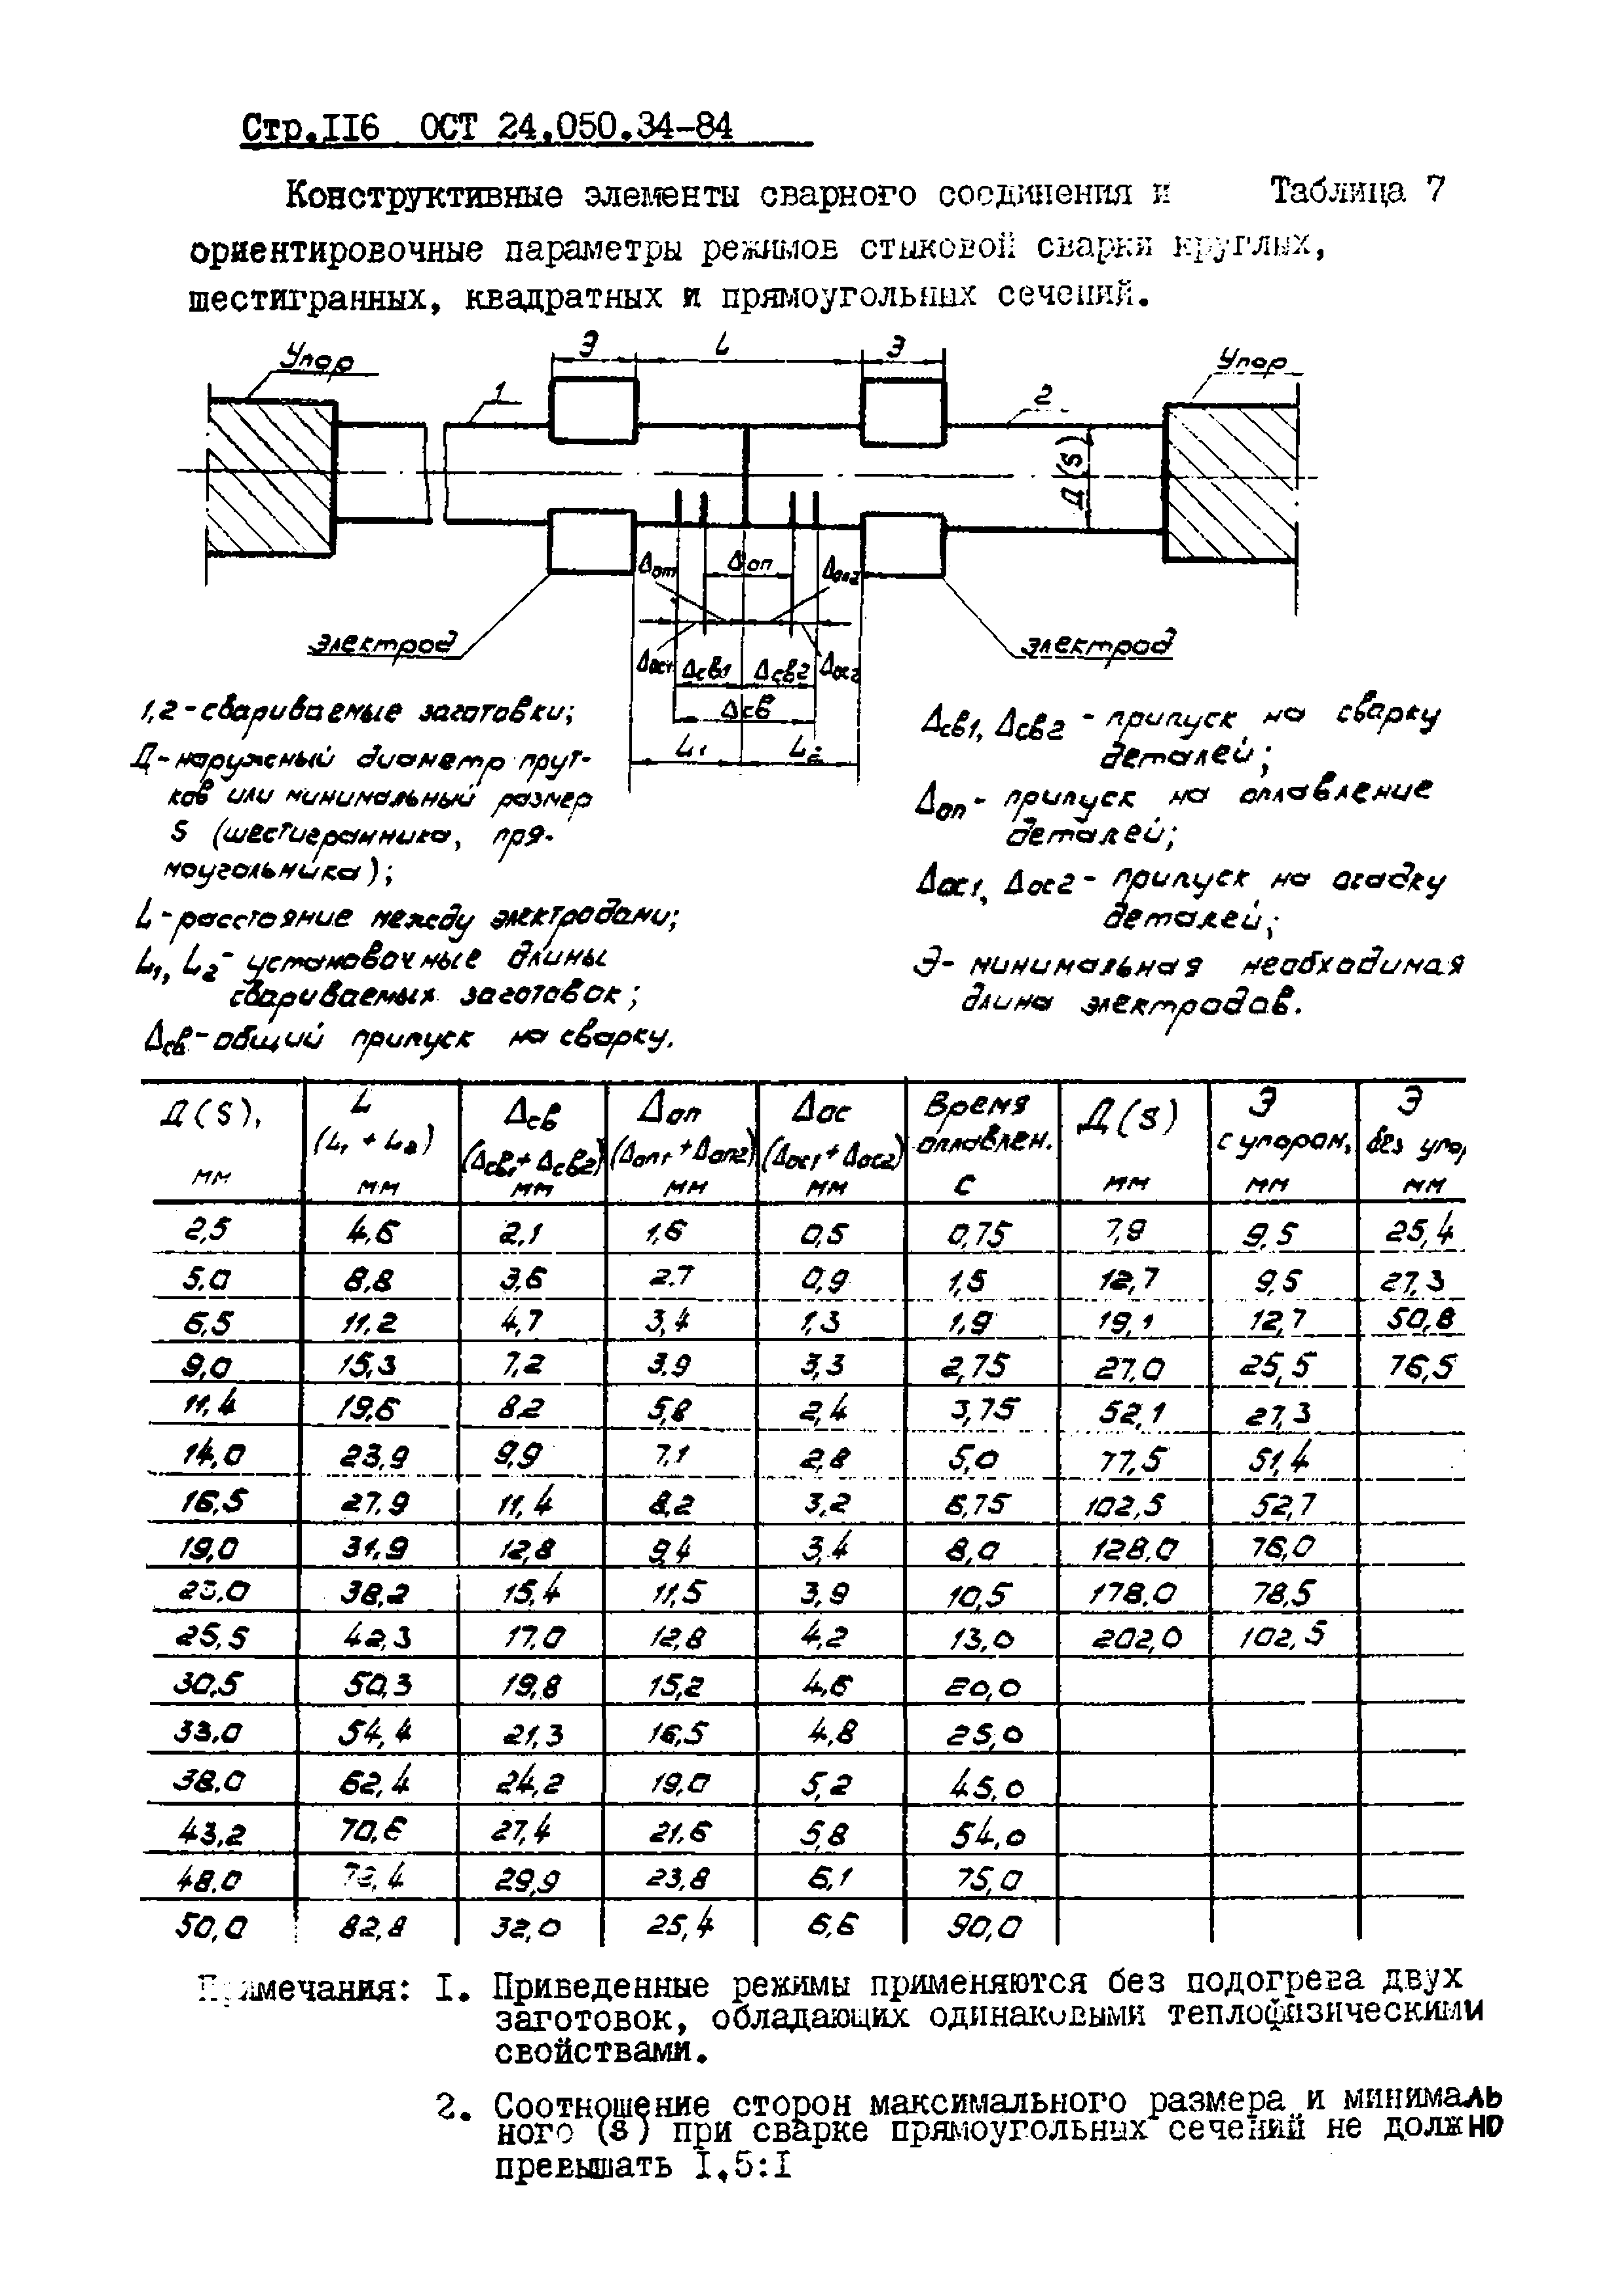 Стр.II6 ОСТ 24.050.34-84
Конструктивные элементы сварного соединения и Таблица 7
ориентировочные параметры режимов стыковой сварки круглых,
шестигранных, квадратных и прямоугольных сечений.
Упор
1
Э
L
Э
2
Упор
Д(S)
Δоп
Δоп2
электрод
Δос1
Δсв1
Δсв2
Δос2
электрод
Δсв
L1
L2
1,2-свариваемые заготовки;
Д-наружный диаметр прут-
ков или минимальный размер
S (шестигранника, пря-
моугольника);
L-расстояние между электродами;
L1, L2- установочные длины
свариваемых заготовок;
Δсв-общий припуск на сварку.
Δсв1, Δсв2 - припуск на сварку
деталей;
Δоп- припуск на оплавление
деталей;
Δос1, Δос2- припуск на осадку
деталей;
Э- минимальная необходимая
длина электродов.
Д(S), мм | L (L1 + L2) мм | Δсв (Δсв1+Δсв2) мм | Δоп (Δоп1+Δоп2) мм | Δос (Δос1+Δос2) мм | Время оплавлен. с | Д(S) мм | Э с упором, мм | Э без упо, мм
2,5 4,6 2,1 1,6 0,5 0,75 7,9 9,5 25,4
5,0 8,8 3,6 2,7 0,9 1,5 12,7 9,5 27,3
6,5 11,2 4,7 3,4 1,3 1,9 19,1 12,7 50,8
9,0 15,3 7,2 3,9 3,3 2,75 27,0 25,5 76,5
11,4 19,6 8,2 5,8 2,4 3,75 52,1 27,3
14,0 23,9 9,9 7,1 2,8 5,0 77,5 51,4
16,5 27,9 11,4 8,2 3,2 6,75 102,5 52,7
19,0 31,9 12,8 9,4 3,4 8,0 128,0 76,0
23,0 38,2 15,4 11,5 3,9 10,5 178,0 78,5
25,5 42,3 17,0 12,8 4,2 13,0 202,0 102,5
30,5 50,3 19,8 15,2 4,6 20,0
33,0 54,4 21,3 16,5 4,8 25,0
38,0 62,4 24,2 19,0 5,2 45,0
43,2 70,6 27,4 21,6 5,8 54,0
48,0 29,9 23,8 6,1 75,0
50,0 82,8 32,0 25,4 6,6 90,0
Примечания: I. Приведенные режимы применяются без подогрева двух
заготовок, обладающих одинаковыми теплофизическими
свойствами.
2. Соотношение сторон максимального размера и минималь
ного (S) при сварке прямоугольных сечений не должно
превышать I,5:I